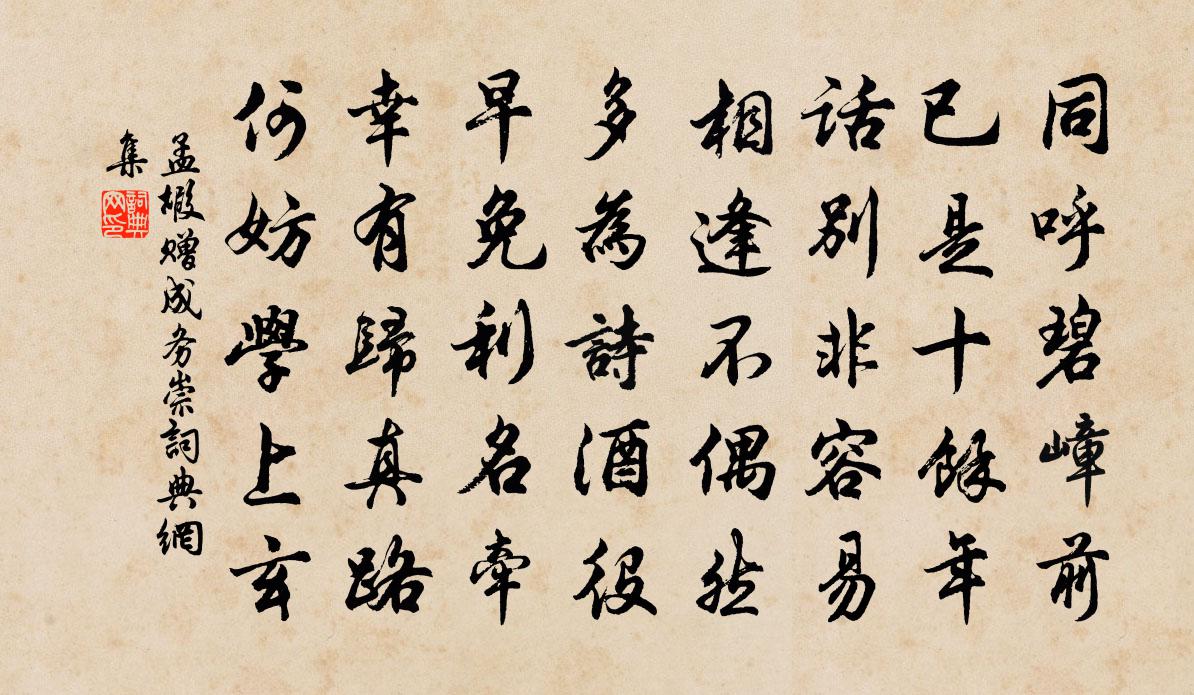 同呼碧嶂前
已是十餘年
話別非容易
相逢不偶然
多為詩酒役
早免利名牽
幸有歸真路
何妨學上玄
孟嘏贈成务崇詞典網
集
詞典
网印